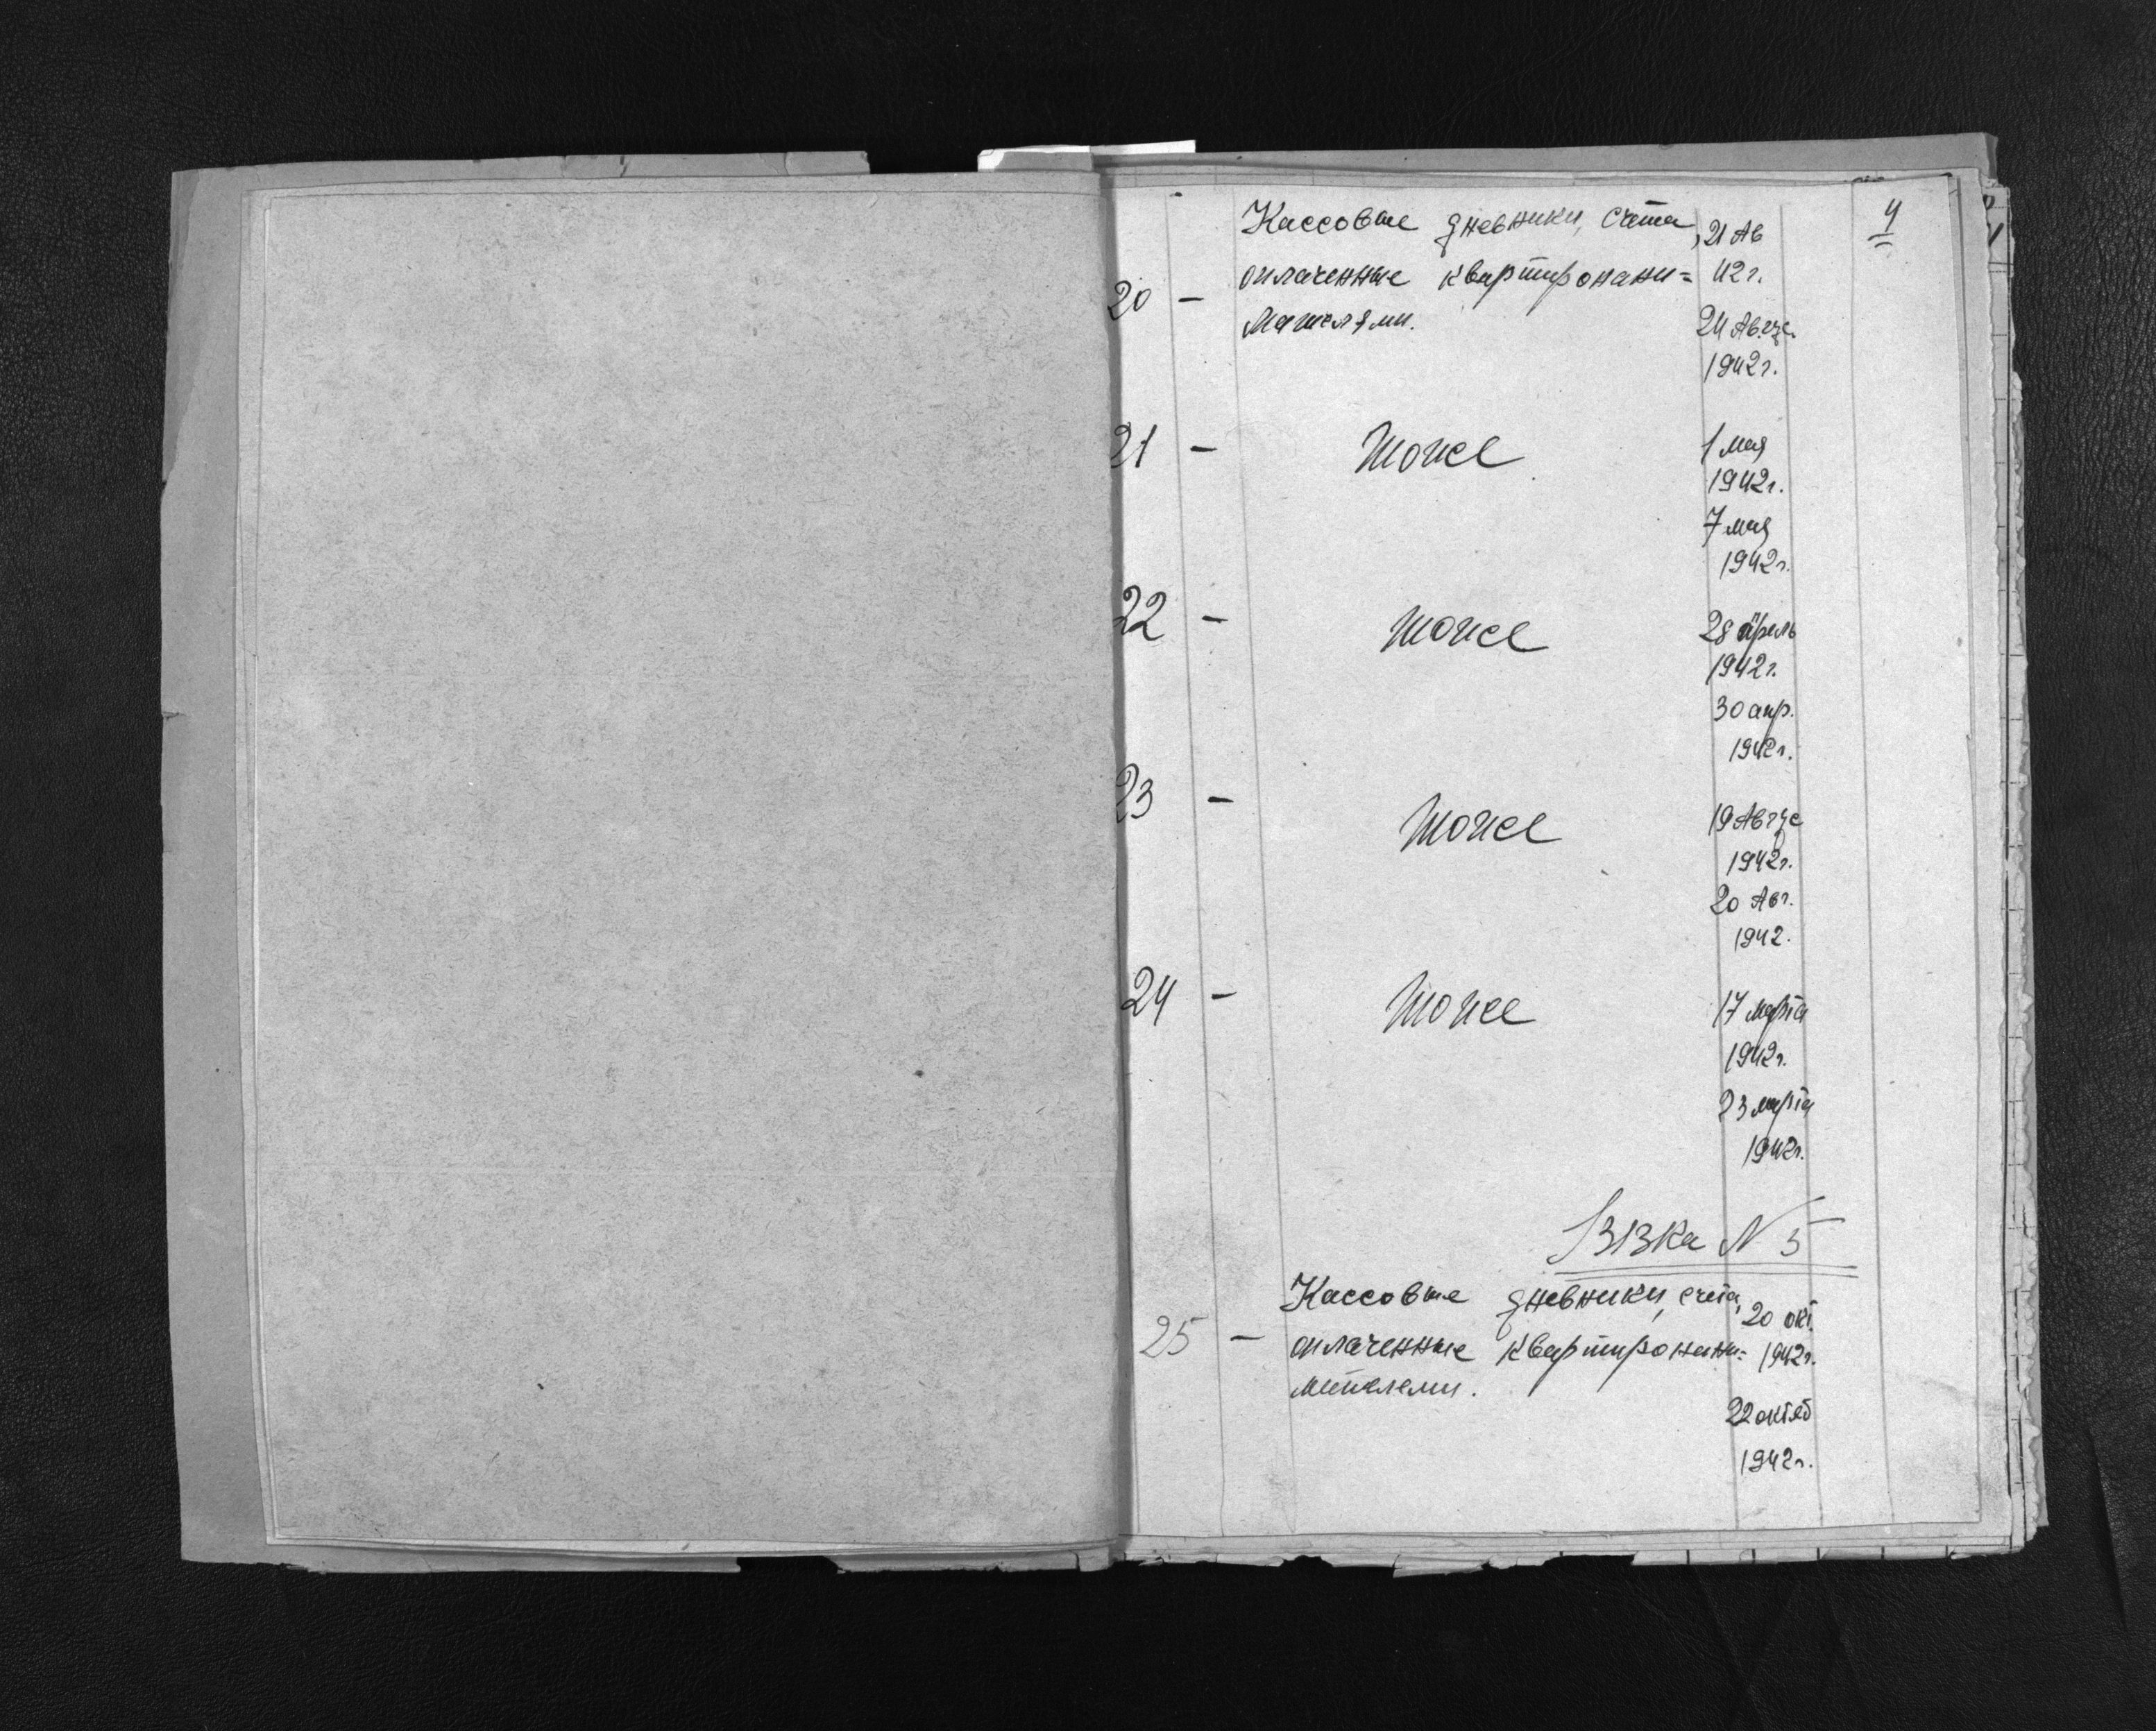 4
Кассовые дневники, счета,
оплаченные квартиронани=
20 –
мателями.
21 Ав
42г.
24 Авгус.
1942г.
21 – тоже
1 мая
1942г.
7 мая
1942г.
22 – тоже
28 апрель
1942г.
30 апр.
1942г.
23 – тоже
19 Авгус
1942г.
20 Авг.
1942.
24 – тоже
17 марта
1942г.
23 марта
1942г.
Вязка N 5
Кассовые дневники, счета,
25 – оплаченные квартиронани=
мателеми.
20 окт.
1942г.
22 октяб
1942г.